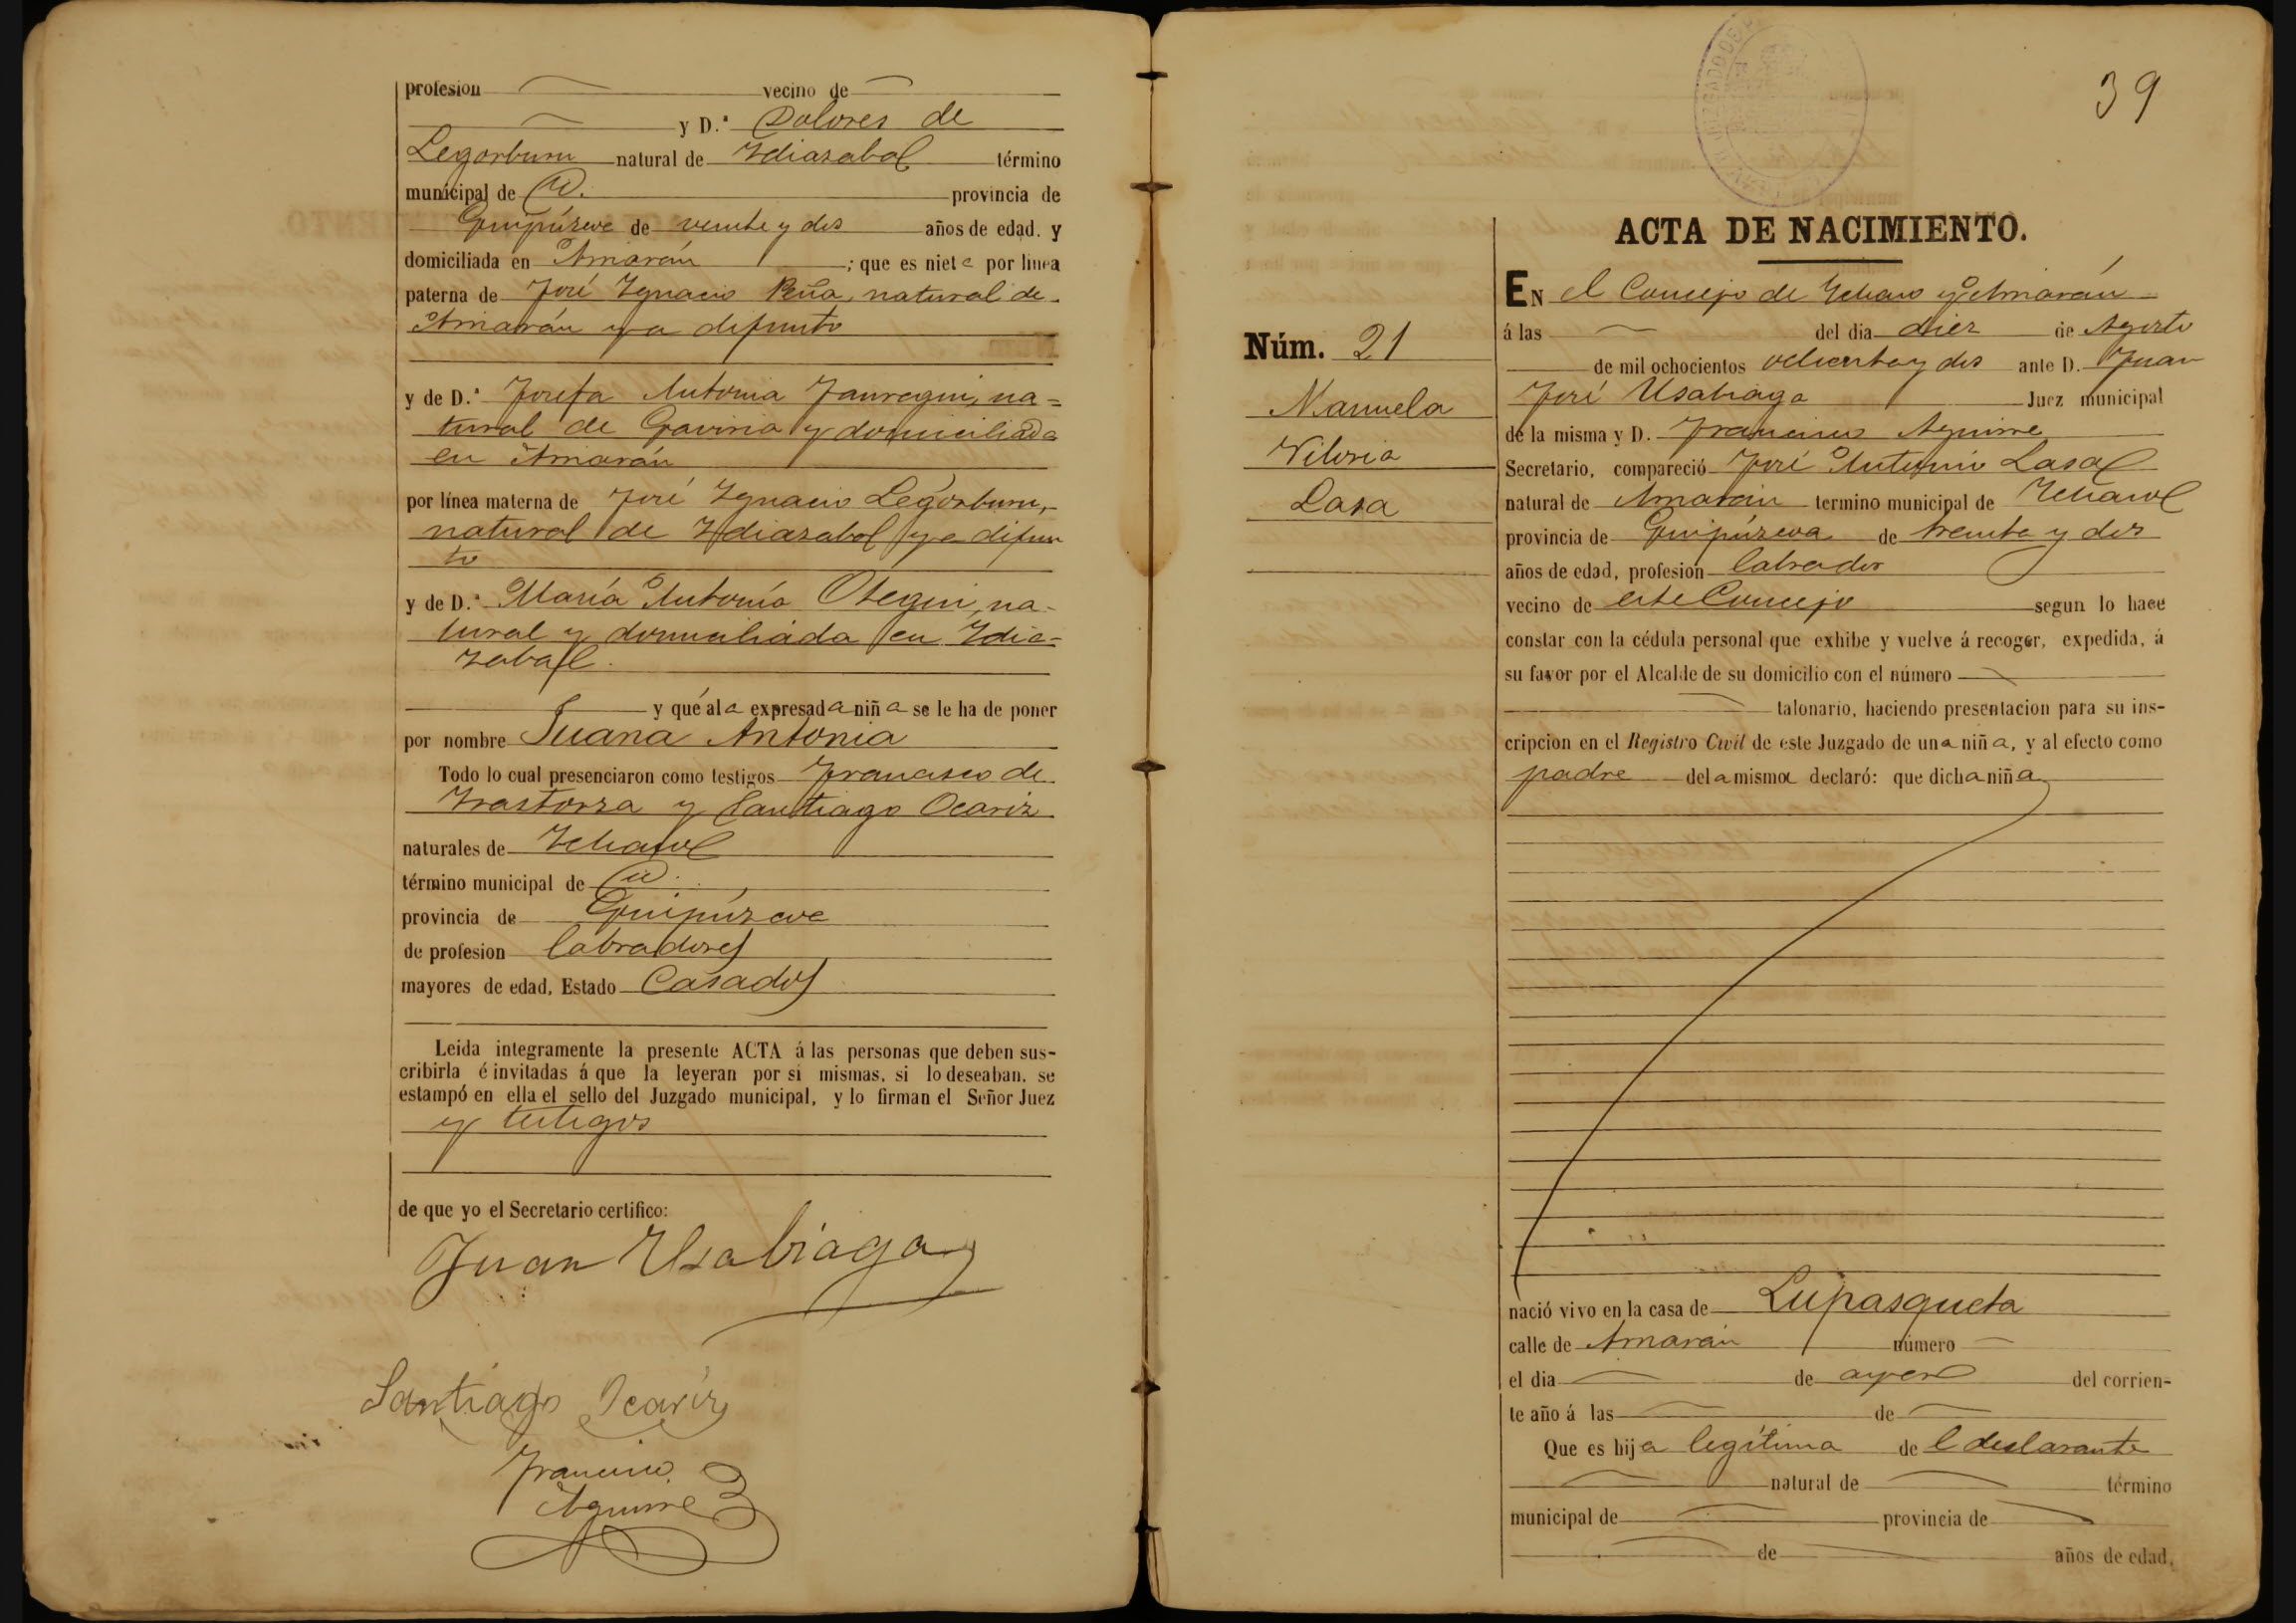 profesion vecino de
y D.ª Dolores de
Legorburu natural de Idiazabal término
municipal de Id. provincia de
Guipúzcoa de veinte y dos años de edad. y
domiciliada en Arriarán ; que es nieta por linea
paterna de José Ygnacio Peña, natural de
Arriarán ya difunto
y de D.ª Josefa Antonia Jauregui, na=
tural de Gaviria y domiciliada
en Arriarán
por línea materna de José Ygnacio Legorburu,
natural de Idiazabal ya difun
to
y de D.ª María Antonía Otegui, na-
tural y domiciliáda en Idia-
zabal.
y qué ála expresada niña se le ha de poner
por nombre Juana Antonia
Todo lo cual presenciaron como testigos Francisco de
Yrastorza y Santiago Ocariz
naturales de Ichaso
término municipal de id.
provincia de Guipúzcoa
de profesion labradores
mayores de edad, Estado Casados
Leida integramente la presente ACTA á las personas que deben sus-
cribirla é invitadas á que la leyeran por si mismas, si lo deseaban, se
estampó en ella el sello del Juzgado municipal, y lo firman el Señor Juez
y testigos
de que yo el Secretario certifico:
Juan Usabiaga
Santiago Ocariz
Francisco
Aguirre
39
ACTA DE NACIMIENTO.
Núm. 21
Manuela
Viloria
Lasa
EN el Concejo de Ichaso y Arriarán
á las del dia diez de Agosto
de mil ochocientos ochenta y dos ante D. Juan
José Usabiaga Juez municipal
de la misma y D. Francisco Aguirre
Secretario, compareció José Antonio Lasa
natural de Arriarán termino municipal de Ichaso
provincia de Guipúzcoa de treinta y dos
años de edad, profesion labrador
vecino de este Concejo segun lo hace
constar con la cédula personal que exhibe y vuelve á recoger, expedida, á
su favor por el Alcalde de su domicilio con el número
talonario, haciendo presentacion para su ins-
cripcion en el Registro Civil de este Juzgado de una niña, y al efecto como
padre de la misma declaró: que dicha niña
nació vivo en la casa de Lupasqueta
calle de Arriarán número
el dia de ayer del corrien-
te año á las de
Que es hija legítima de l declarante
natural de término
municipal de provincia de
de años de edad,